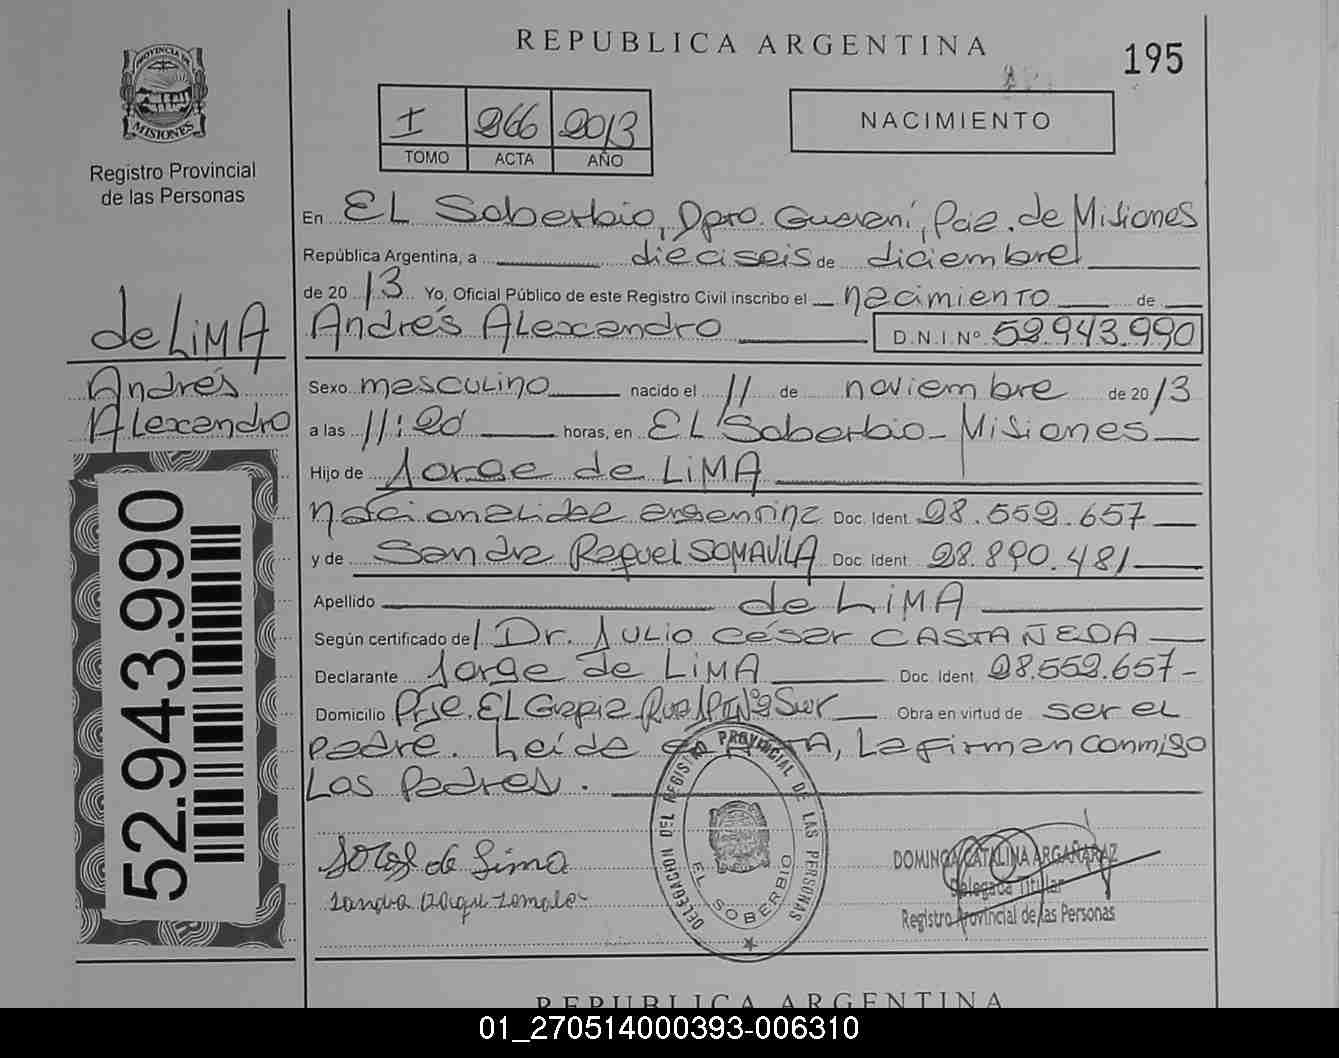 REPUBLICA ARGENTINA
195
I 266 2013
TOMO ACTA AÑO
NACIMIENTO
PROVINCIA DE
MISIONES
Registro Provincial
de las Personas
En EL Soberbio, Dpto. Guaraní, Pcia. de Misiones
República Argentina, a dieciseis de diciembre
de 20 13 Yo, Oficial Público de este Registro Civil inscribo el nacimiento de
Andrés Alexandro D.N.I.Nº 52.943.990
de LiMA
Andrés
Alexandro
Sexo masculino nacido el 11 de noviembre de 20 13
a las 11:20 horas, en EL Soberbio - Misiones
Hijo de Jorge de LiMA
nacionalidad argentina Doc. Ident. 28.552.657
y de Sandra Raquel SOMAVILA Doc. Ident. 28.890.481
Apellido de LiMA
Según certificado de Dr. Julio César CASTAÑEDA
Declarante Jorge de LiMA Doc. Ident. 28.552.657-
Domicilio Pje. EL Grapia Nº2 Sur Obra en virtud de ser el
padre. Leída, La firman conmigo
Los padres.
52.943.990
Jorge de Lima
Sandra
DELEGACION DEL REGISTRO PROVINCIAL DE LAS PERSONAS
EL SOBERBIO
DOMINGA CATALINA ARGAÑARAZ
Delegada Titular
Registro Provincial de las Personas
REPUBLICA ARGENTINA
01_270514000393-006310